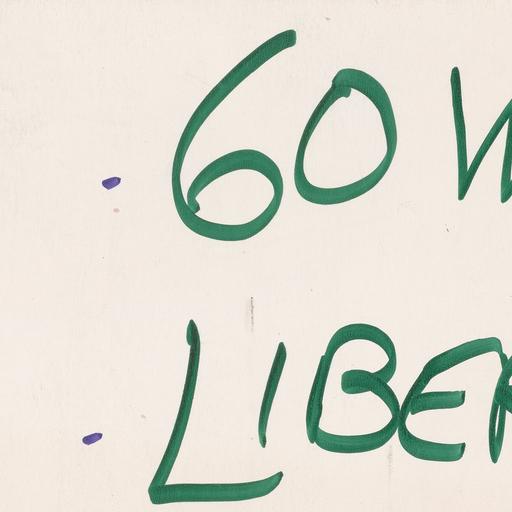 60 W
LIBER